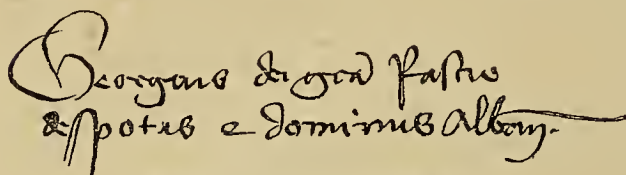 Georgius dei gr̄a Rascie
despotus e dominus Albanij.